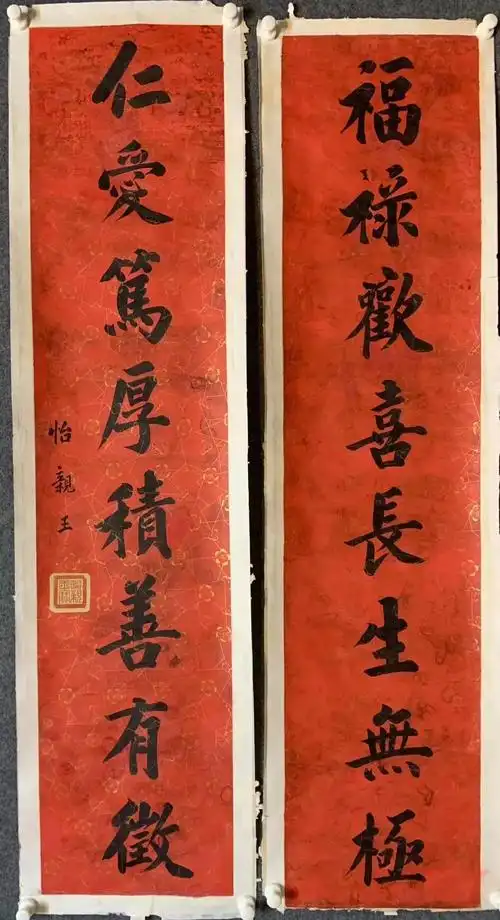 福祿歡喜長生無極
仁愛篤厚積善有徵
怡親王